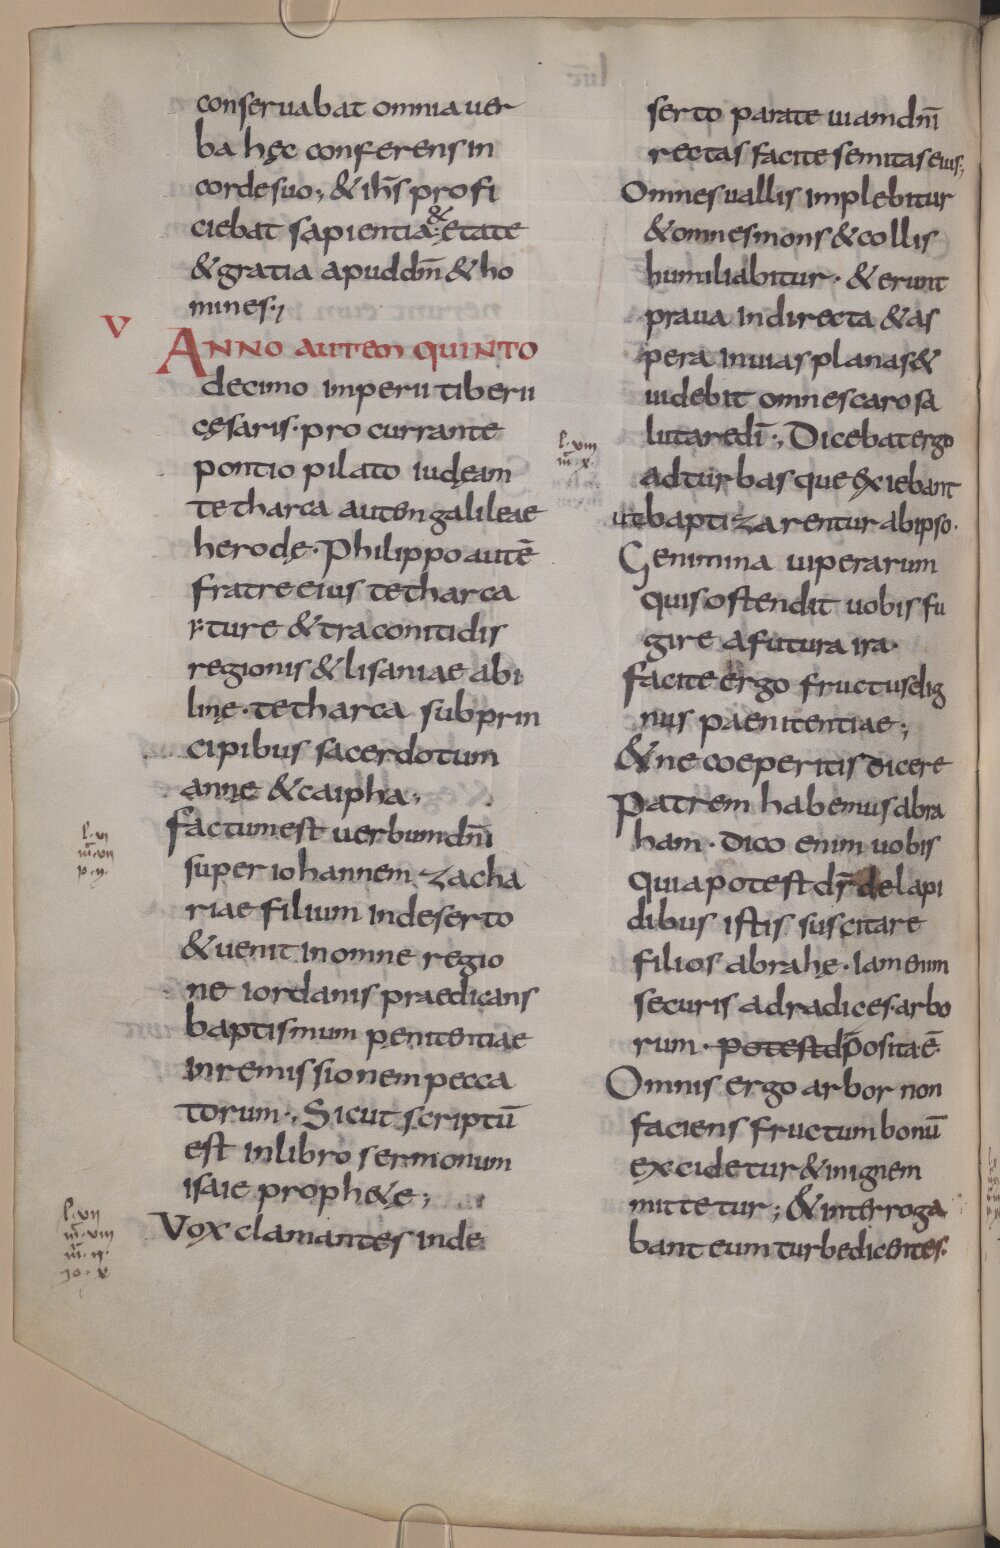 conseruabat omnia uer
ba hęc conferens in
corde suo; & ihs̄ profi
ciebat sapientia & ętate
& gratia apud dm̄ & ho
mines;
V
Anno autem quinto
decimo imperii tiberii
cęsaris · pro currante
pontio pilato iudęam
tetharca autem galileae
herodę · Philippo autē
fratre eius tetharca
ture & traconitidis
regionis & lisaniae abi
linę · tetharca sub prin
cipibus sacerdotum
annę & caipha;
factum est uerbum dn̄i
super iohannem zacha
riae filium in deserto
& uenit in omne regio
ne iordanis praedicans
baptismum penitentiae
in remissionem pecca
torum; Sicut scriptū
est in libro sermonum
isaie prophetę;
Vox clamantes in de
l · vi
m̄ · vii
l · vii
m̄ · viii
io · x
serto parate uiam dn̄i
rectas facite semitas eius;
Omnes uallis implebitur
& omnes mons & collis
humiliabitur · & erunt
praua in directa & as
pera in uias planas &
uidebit omnes caro sa
lutare dī; Dicebat ergo
l · viii
m̄ · x
ad turbas que exiebant
ut baptizarentur ab ipso ·
Genimina uiperarum
quis ostendit uobis fu
gire a futura ira ·
facite ergo fructus dig
nus paenitentiae;
& ne coeperitis dicere
Patrem habemus abra
ham · dico enim uobis
quia potest ds̄ de lapi
dibus istis suscitare
filios abrahę · Iam enim
securis ad radices arbo
rum · potest d posita ē ·
Omnis ergo arbor non
faciens fructum bonū
excidetur & in ignem
mittetur; & interroga
bant eum turbe dicentes ·